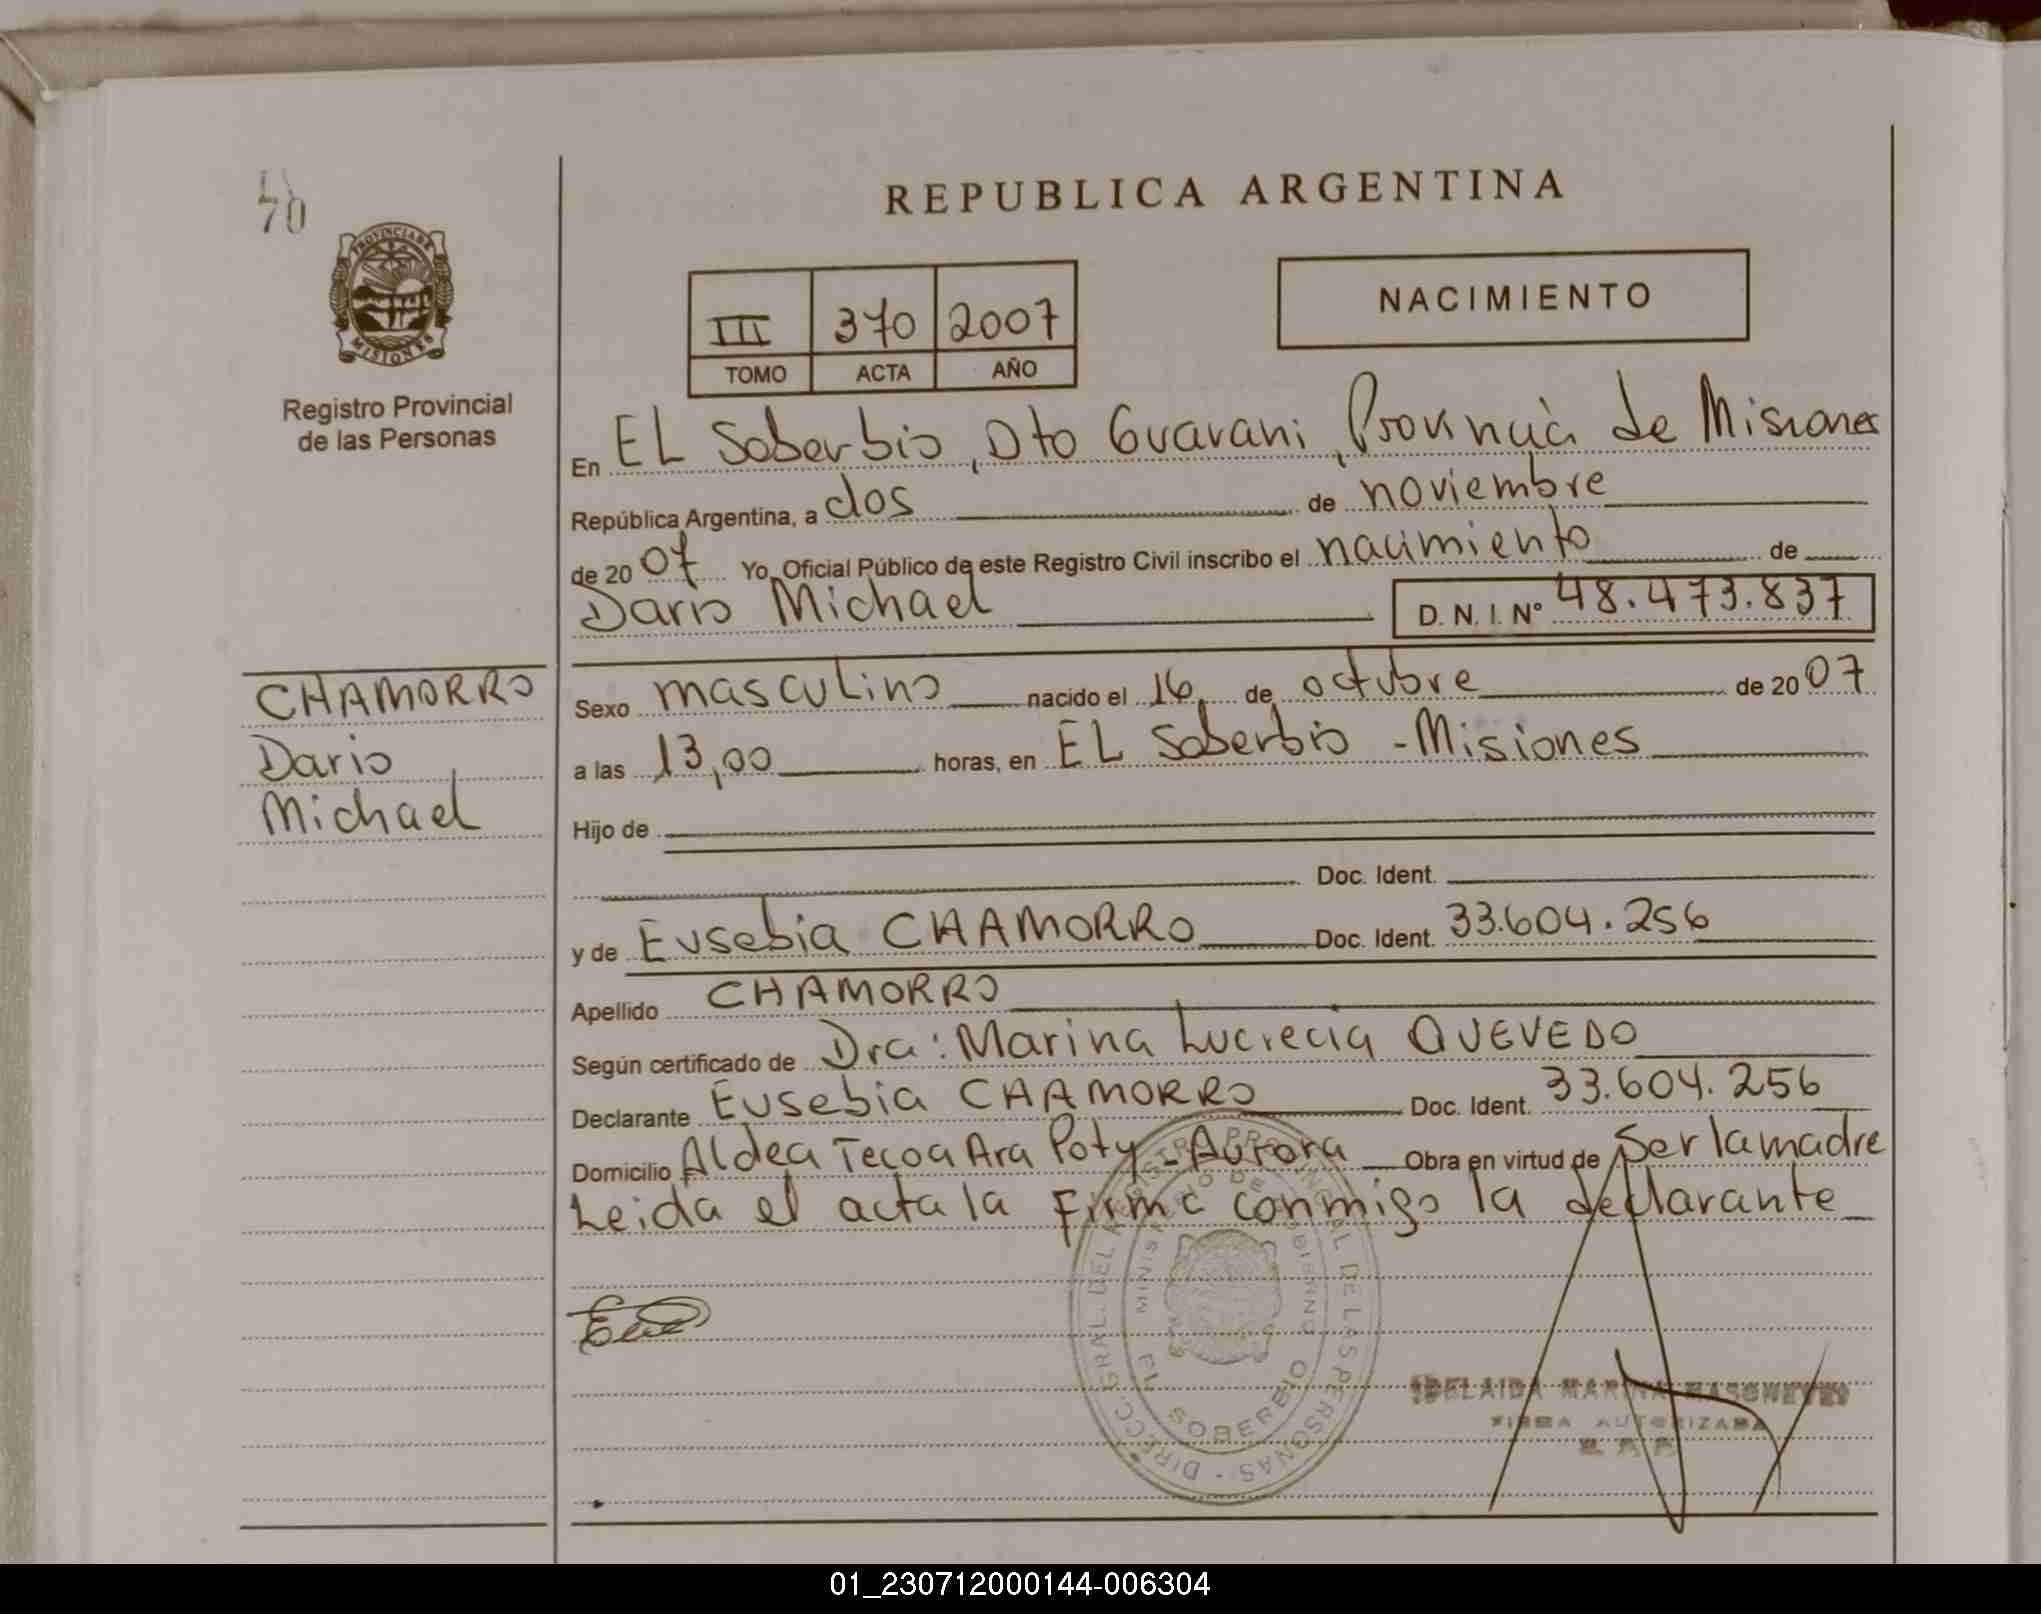 70
PROVINCIA DE
MISIONES
Registro Provincial
de las Personas
REPUBLICA ARGENTINA
III 370 2007
TOMO ACTA AÑO
NACIMIENTO
En EL Soberbio, Dto Guarani, Provincia de Misiones
República Argentina, a dos de noviembre
de 2007 Yo, Oficial Público de este Registro Civil inscribo el nacimiento de
Dario Michael D. N. I. Nº 48.473.837
CHAMORRO
Dario
Michael
Sexo masculino nacido el 16 de octubre de 2007
a las 13,00 horas, en EL Soberbio - Misiones
Hijo de
Doc. Ident.
y de Eusebia CHAMORRO Doc. Ident. 33.604.256
Apellido CHAMORRO
Según certificado de Dra: Marina Lucrecia QUEVEDO
Declarante Eusebia CHAMORRO Doc. Ident. 33.604.256
Domicilio Aldea Tecoa Ara Poty - Aurora Obra en virtud de Ser la madre
Leida el acta la firma conmigo la declarante
DIRECC. GRAL. DEL REGISTRO PROVINCIAL DE LAS PERSONAS
MINISTERIO DE GOBIERNO
EL SOBERBIO
FIRMA AUTORIZADA
01_230712000144-006304